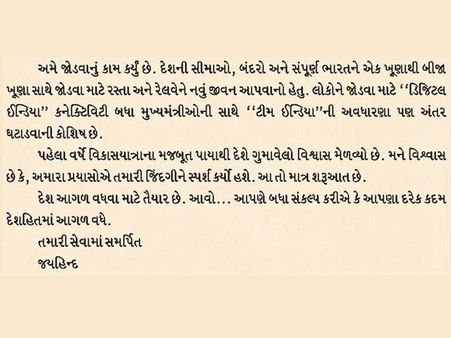 અમે જોડવાનું કામ કર્યું છે. દેશની સીમાઓ, બંદરો અને સંપૂર્ણ ભારતને એક ખૂણાથી બીજા
ખૂણા સાથે જોડવા માટે રસ્તા અને રેલવેને નવું જીવન આપવાનો હેતુ. લોકોને જોડવા માટે ‘‘ડિજિટલ
ઈન્ડિયા” કનેક્ટિવિટી બધા મુખ્યમંત્રીઓની સાથે ‘‘ટીમ ઈન્ડિયા”ની અવધારણા પણ અંતર
ઘટાડવાની કોશિષ છે.
પહેલા વર્ષે વિકાસયાત્રાના મજબૂત પાયાથી દેશે ગુમાવેલો વિશ્વાસ મેળવ્યો છે. મને વિશ્વાસ
છે કે, અમારા પ્રયાસોએ તમારી જિંદગીને સ્પર્શ કર્યો હશે. આ તો માત્ર શરૂઆત છે.
દેશ આગળ વધવા માટે તૈયાર છે. આવો... આપણે બધા સંકલ્પ કરીએ કે આપણા દરેક કદમ
દેશહિતમાં આગળ વધે.
તમારી સેવામાં સમર્પિત
જયહિન્દ